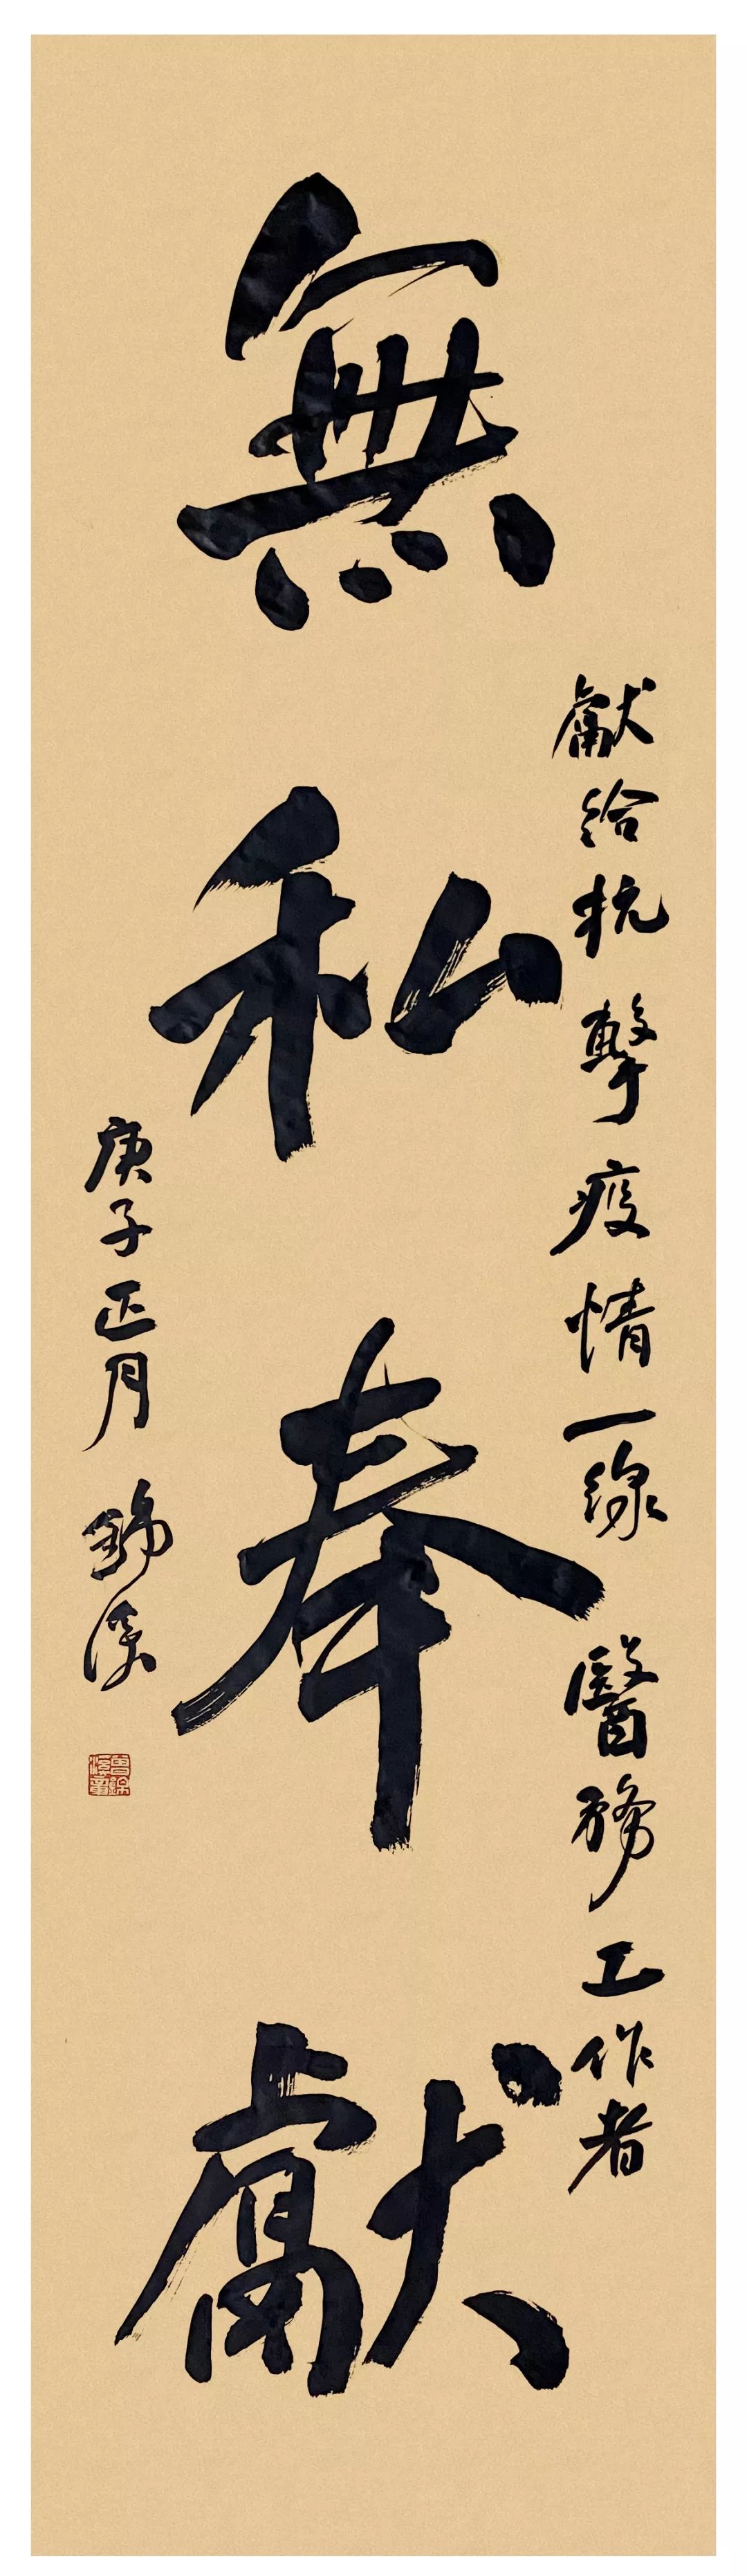 獻給抗擊疫情一線醫務工作者
無私奉獻
庚子正月錦溪